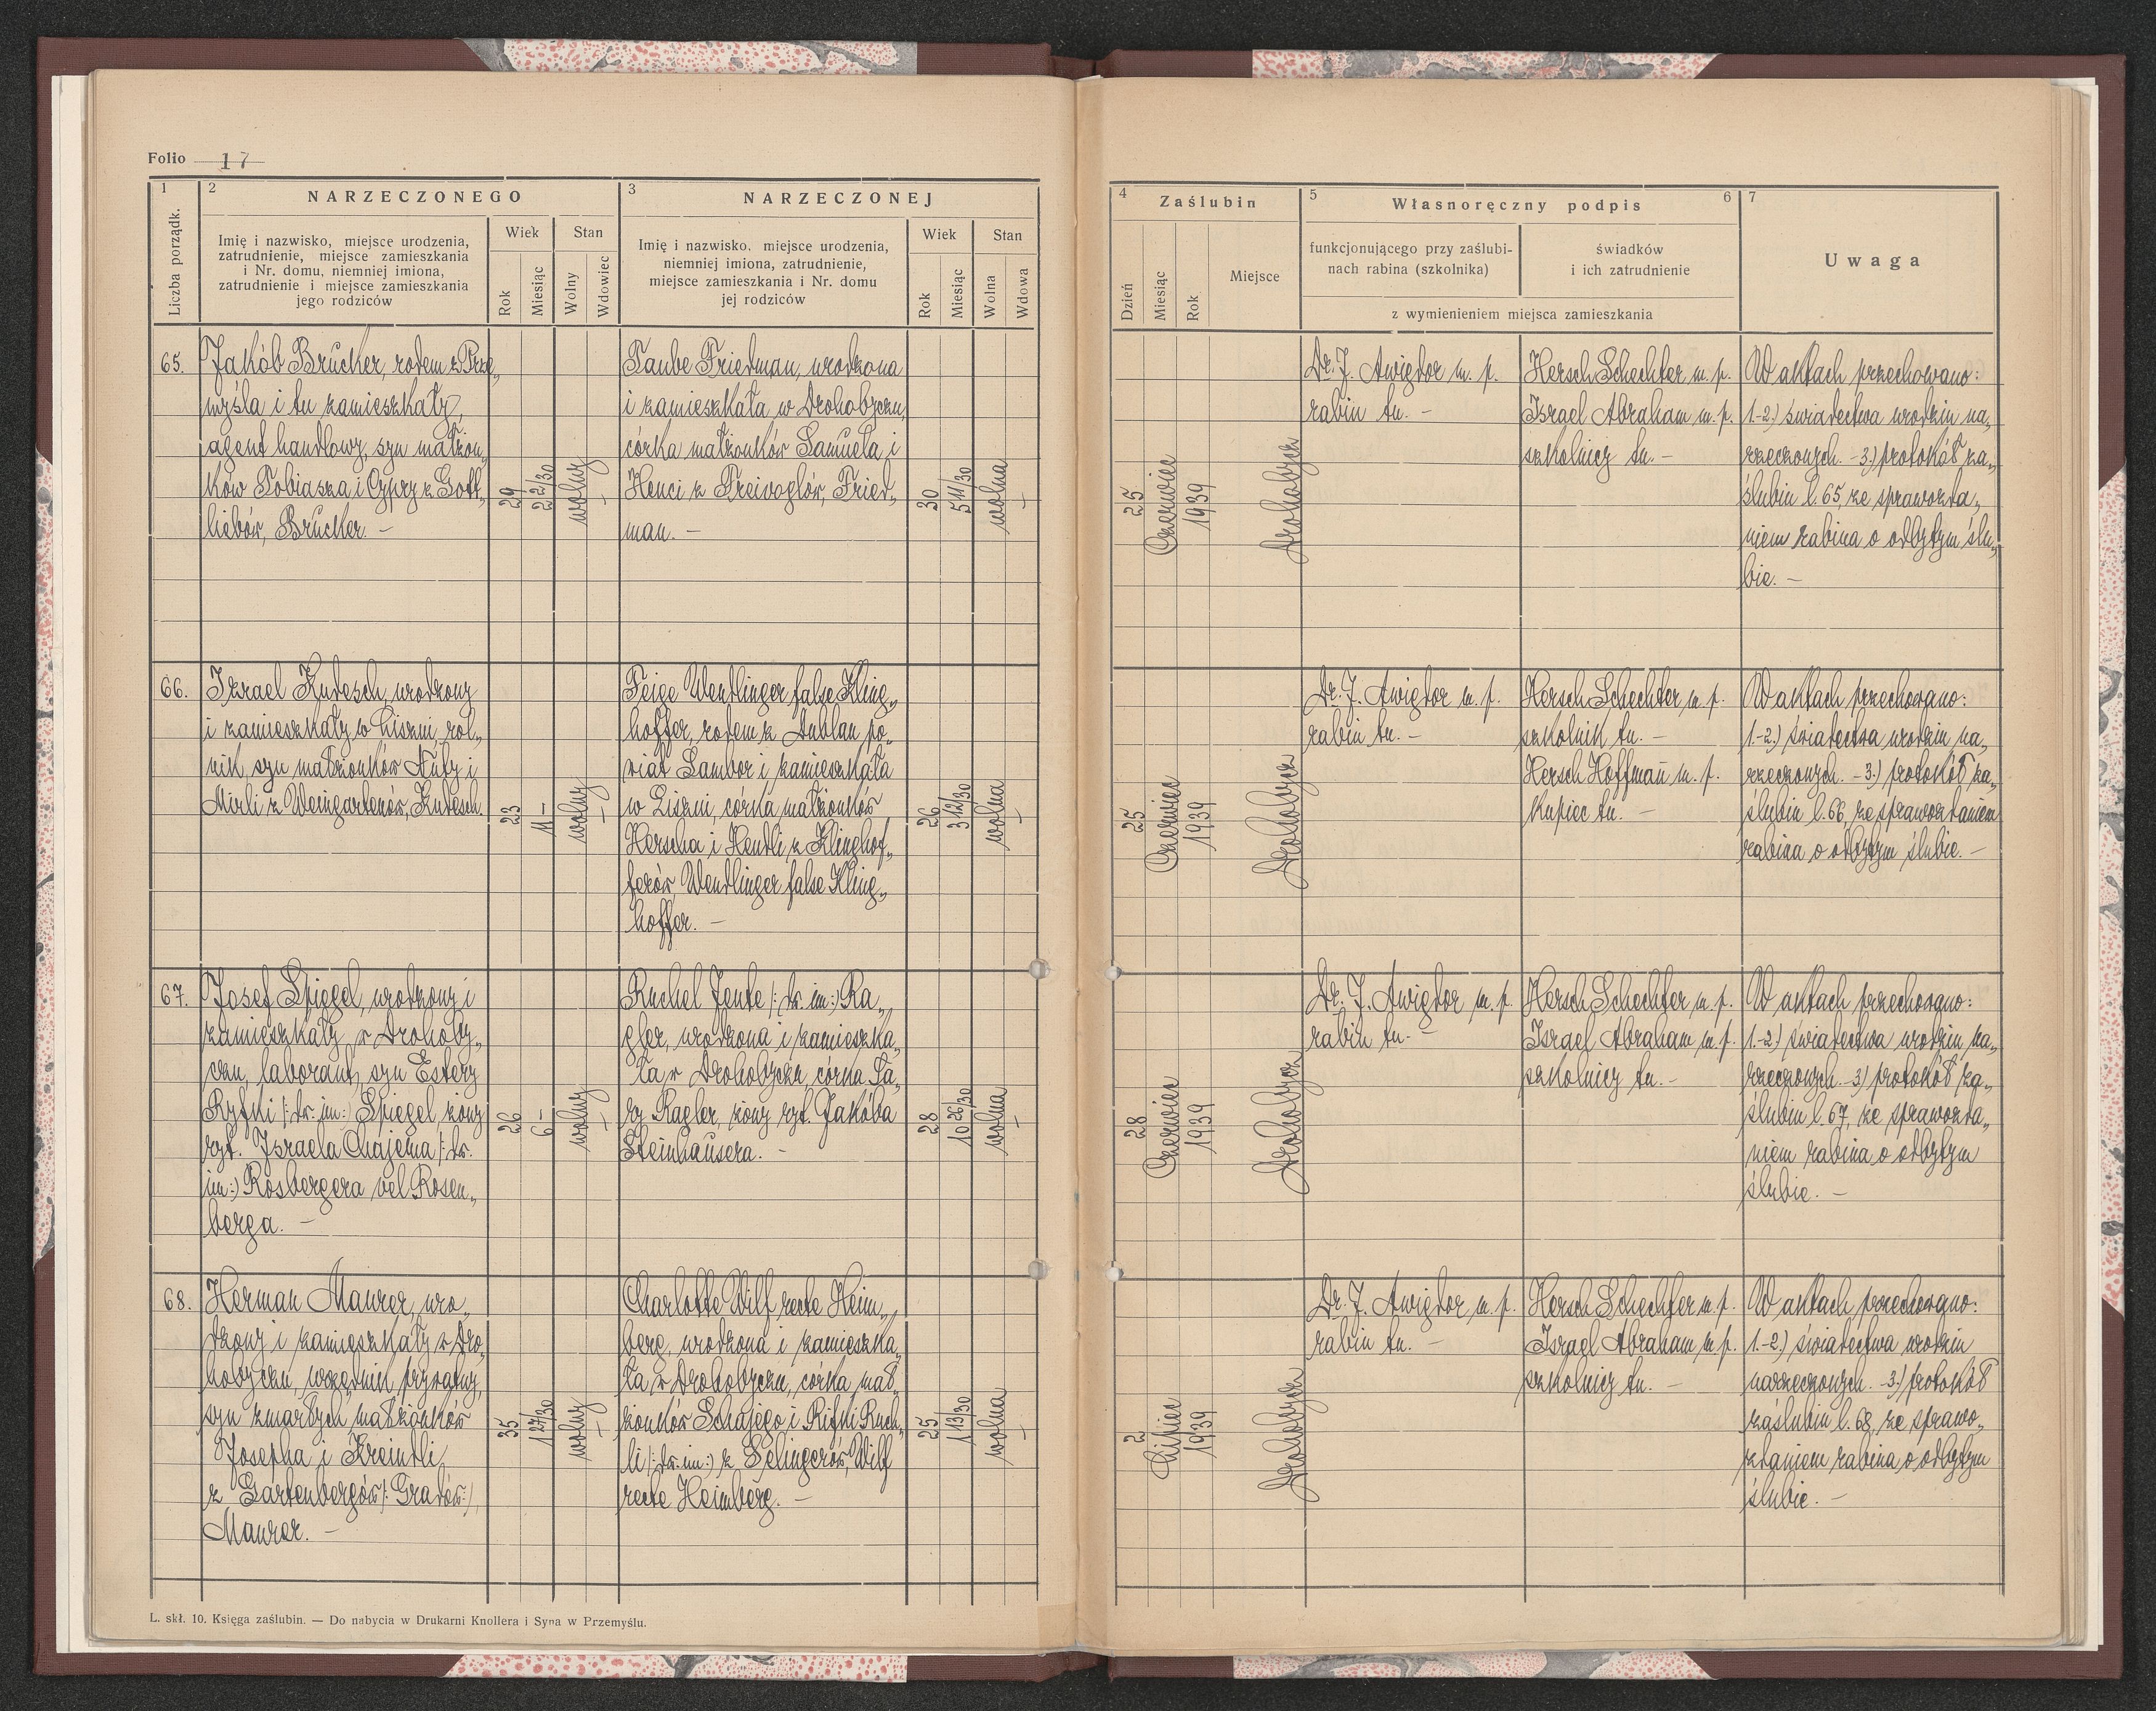 Folio 17
1
Liczba porządk.
2
NARZECZONEGO
Imię i nazwisko, miejsce urodzenia,
zatrudnienie, miejsce zamieszkania
i Nr. domu, niemniej imiona,
zatrudnienie i miejsce zamieszkania
jego rodziców
Wiek
Rok
Miesiąc
Stan
Wolny
Wdowiec
3
NARZECZONEJ
Imię i nazwisko, miejsce urodzenia,
niemniej imiona, zatrudnienie,
miejsce zamieszkania i Nr. domu
jej rodziców
Wiek
Rok
Miesiąc
Stan
Wolna
Wdowa
4
Zaślubin
Dzień
Miesiąc
Rok
Miejsce
5
Własnoręczny podpis
6
funkcjonującego przy zaślubi-
nach rabina (szkolnika)
świadków
i ich zatrudnienie
z wymienieniem miejsca zamieszkania
7
Uwaga
65.
Jakób Brücker, rodem z Prze„
myśla i tu zamieszkały,
agent handlowy, syn małżon„
ków Tobiasza i Cypry z Gott„
liebów, Brücker. —
29
2 2/30
wolny
—
Taube Friedman, urodzona
i zamieszkała w Drohobyczu,
córka małżonków Samuela i
Henci z Freivoglów, Fried„
man. —
30
5 11/30
wolna
—
25
Czerwiec
1939
Drohobycz
Dr. J. Awigdor m. p.
rabin tu. —
Hersch Schechter m. p.
Israel Abraham m. p.
szkolnicy tu. —
W aktach przechowano:
1.-2.) świadectwa urodzin na„
rzeczonych. - 3.) protokół za„
ślubin l. 65, ze sprawozda„
niem rabina o odbytym ślu„
bie. —
66.
Izrael Kudesch, urodzony
i zamieszkały w Liszni, rol„
nik, syn małżonków Nuty i
Mirli z Weingartenów, Kudesch.
23
11 —
wolny
—
Feige Wendlinger false Kling„
hoffer, rodem z Dublan po„
wiat Sambor i zamieszkała
w Liszni, córka małżonków
Herscha i Hendli z Klinghof„
ferów, Wendlinger false Kling„
hoffer. —
26
3 12/30
wolna
—
25
Czerwiec
1939
Drohobycz
Dr. J. Awigdor m. p.
rabin tu. —
Hersch Schechter m. p.
szkolnik tu. —
Hersch Hoffman m. p.
kupiec tu. —
W aktach przechowano:
1.-2.) świadectwa urodzin na„
rzeczonych. - 3.) protokół za„
ślubin l. 66, ze sprawozdaniem
rabina o odbytym ślubie. —
67.
Josef Spiegel, urodzony i
zamieszkały w Drohoby„
czu, laborant, syn Estery
Ryfki /: dw. im :/ Spiegel, żony
ryt. Israela Chajema /: dw.
im :/ Rosbergera vel Rosen„
berga. —
26
6 —
wolny
—
Ruchel Jente /: dw. im :/ Ra„
gler, urodzona i zamieszka„
ła w Drohobyczu, córka Sa„
ry Ragler, żony ryt. Jakóba
Steinhausera. —
28
10 26/30
wolna
—
28
Czerwiec
1939
Drohobycz
Dr. J. Awigdor m. p.
rabin tu. —
Hersch Schechter m. p.
Israel Abraham m. p.
szkolnicy tu. —
W aktach przechowano:
1.-2.) świadectwa urodzin na„
rzeczonych. - 3.) protokół za„
ślubin l. 67, ze sprawozda„
niem rabina o odbytym
ślubie. —
68.
Herman Maurer, uro„
dzony i zamieszkały w Dro„
hobyczu, urzędnik prywatny,
syn zmarłych małżonków
Josepha i Kreindli,
z Gartenbergów /: Gradów :/
Maurer. —
35
1 27/30
wolny
—
Charlotte Wilf recte Heim„
berg, urodzona i zamieszka„
ła w Drohobyczu, córka mał„
żonków Schajego i Rifki Ruch„
li /: dw. im :/ z Selingerów, Wilf
recte Heimberg. —
25
1 13/30
wolna
—
2
Lipiec
1939
Drohobycz
Dr. J. Awigdor m. p.
rabin tu. —
Hersch Schechter m. p.
Israel Abraham m. p.
szkolnicy tu. —
W aktach przechowano:
1.-2.) świadectwa urodzin
narzeczonych. - 3.) protokół
zaślubin l. 68, ze sprawo„
zdaniem rabina o odbytym
ślubie. —
L. skł. 10. Księga zaślubin. — Do nabycia w Drukarni Knollera i Syna w Przemyślu.